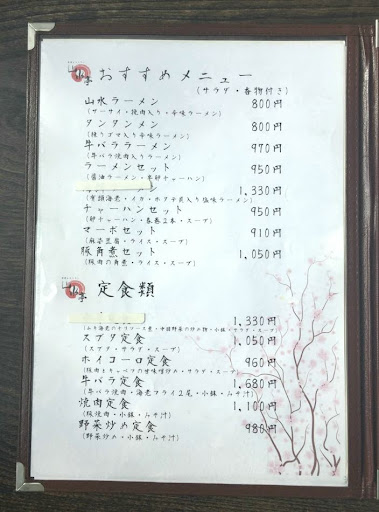 おすすめメニュー
(サラダ・香物付き)
山水ラーメン 800円
(ザーサイ・挽肉入り・辛味ラーメン)
タンタンメン 800円
(練りゴマ入り辛味ラーメン)
牛バララーメン 970円
(牛バラ焼肉入りラーメン)
ラーメンセット 950円
(醤油ラーメン・半卵チャーハン)
ン 1,330円
(有頭海老・イカ・ホタテ貝入り塩味ラーメン)
チャーハンセット 950円
(卵チャーハン・春巻2本・スープ)
マーボセット 910円
(麻婆豆腐・ライス・スープ)
豚角煮セット 1,050円
(豚肉の角煮・ライス・スープ)
定食類
1,330円
(ぷり海老のチリソース煮・中国野菜の炒め物・小鉢・サラダ・スープ)
スブタ定食 1,050円
(スブタ・サラダ・スープ)
ホイコーロ定食 960円
(豚肉とキャベツの甘味噌炒め・サラダ・スープ)
牛バラ定食 1,680円
(牛バラ焼肉・海老フライ2尾・小鉢・みそ汁)
焼肉定食 1,100円
(豚焼肉・小鉢・みそ汁)
野菜炒め定食 980円
(野菜炒め・小鉢・みそ汁)